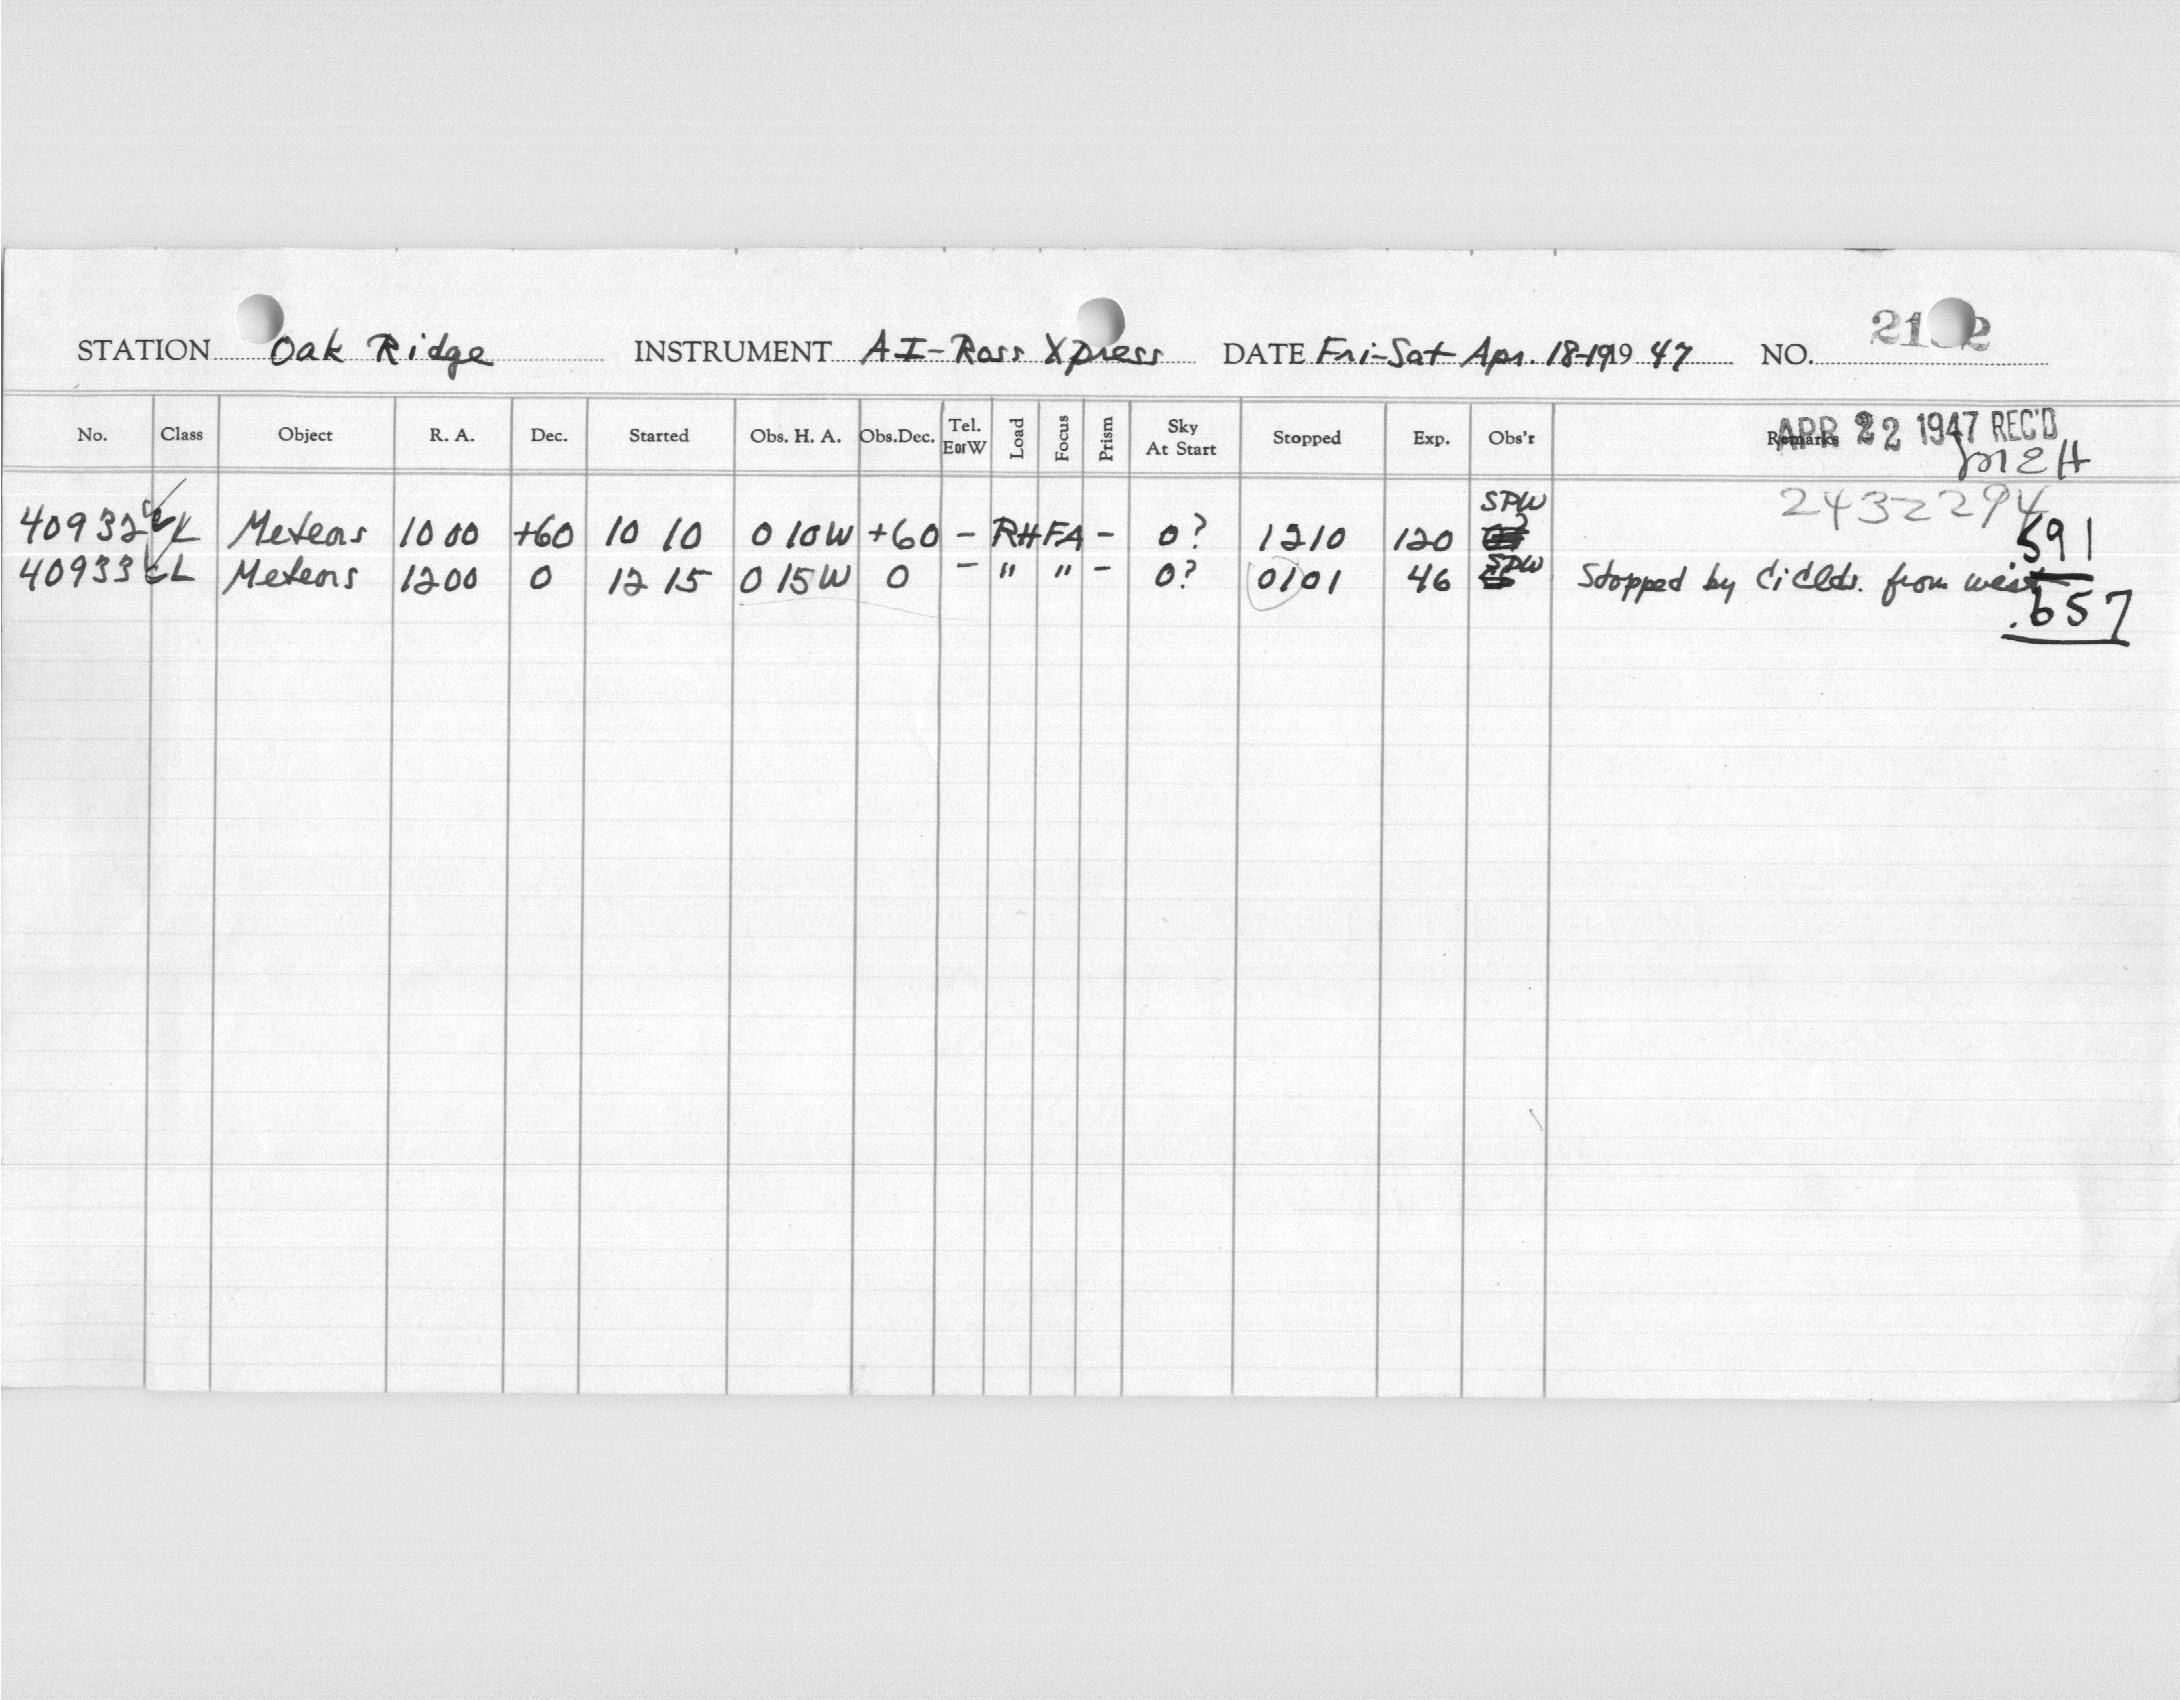 STATION Oak Ridge INSTRUMENT AI-Ross Xpress DATE Fri-Sat Apr. 18-19 19 47 NO.
No. Class Object R. A. Dec. Started Obs. H. A. Obs. Dec. Tel. E or W Load Focus Prism Sky At Start Stopped Exp. Obs'r Remarks
APR 22 1947 REC'D
MEH
2432294
40932 L Meteors 10 00 +60 10 10 0 10W +60 - RH FA - 0? 1210 120 SPW
.591
40933 CL Meteors 1200 0 12 15 0 15W 0 - " " - 0? 0101 46 SPW Stopped by Ci clds. from west
.657